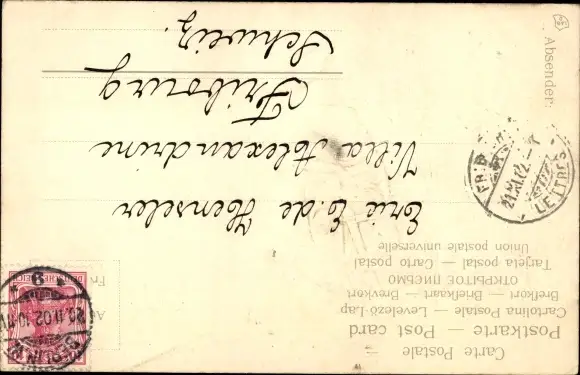 Carte Postale —
Postkarte — Post card —
Cartolina Postale — Levelező-Lap
Brefkort — Briefkaart — Brevkort
ОТКРЫТОЕ ПИСЬМО
Tarjeta postal — Carto postal
Union postale universelle
DEUTSCHES REICH
BERLIN
20.11.02.10-11
9
Eric C. de Henseler
Villa Alexandrine
Fribourg
Schweiz.
FRIB
21.XI.02
LETTRES
Absender: